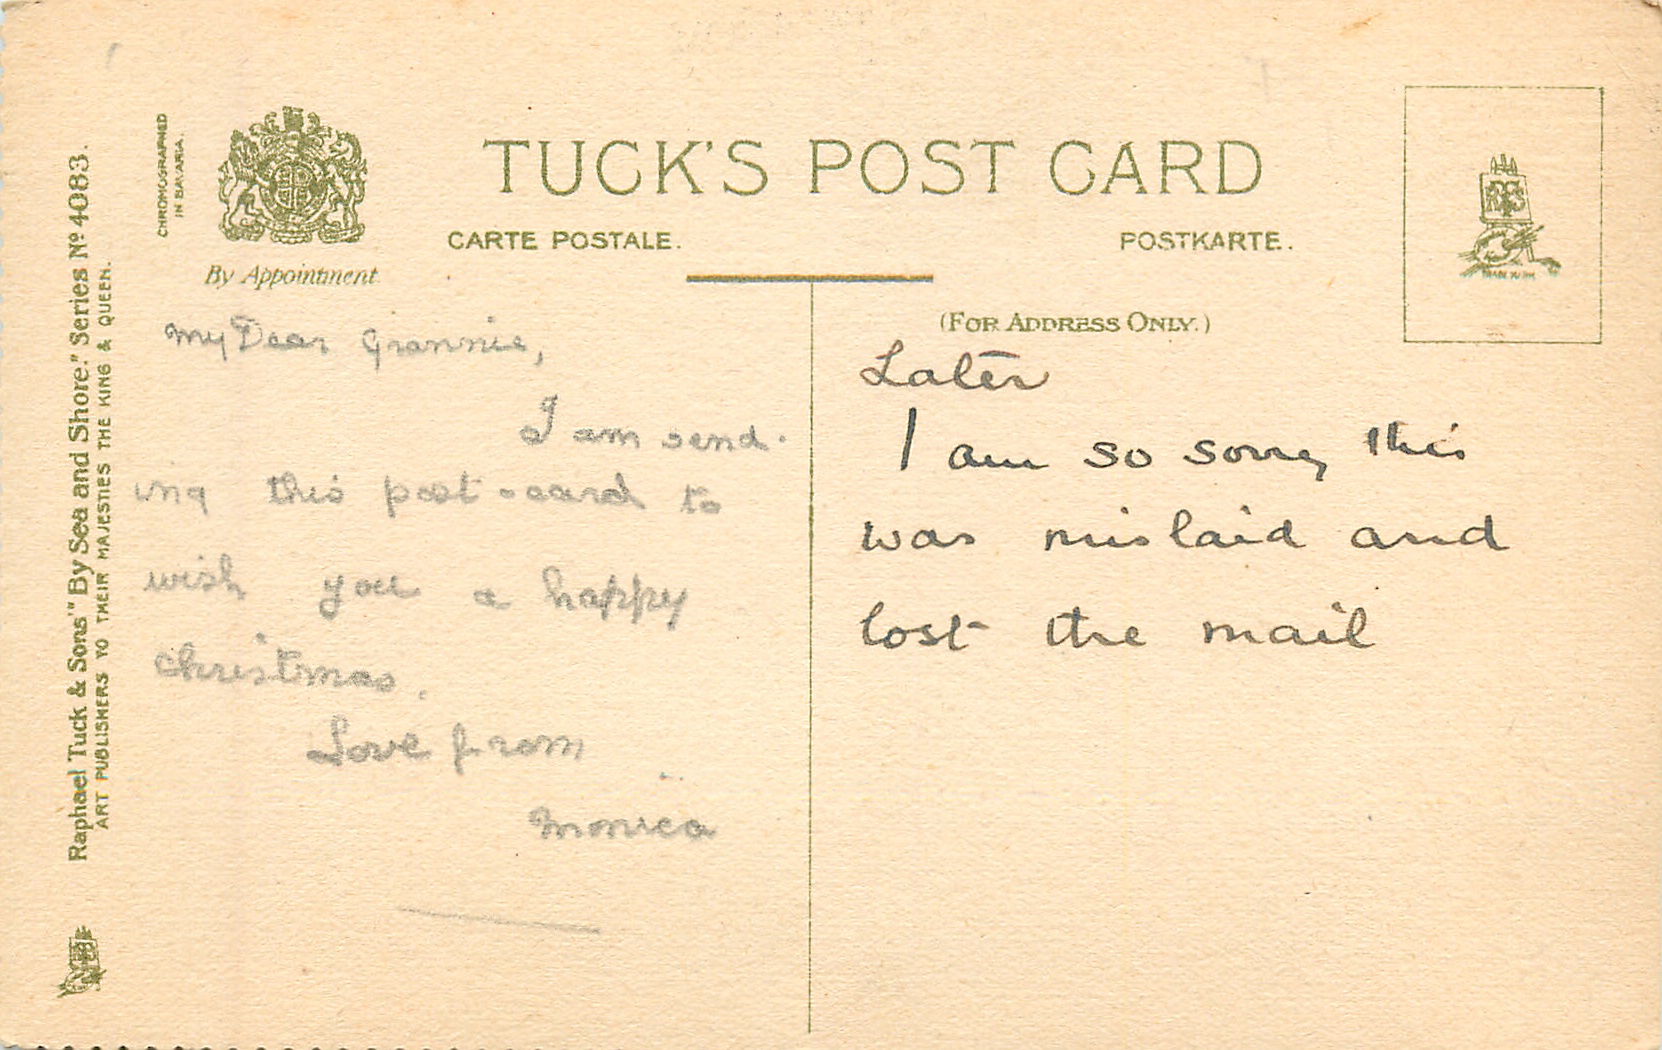 TUCK'S POST CARD
CARTE POSTALE.
POSTKARTE.
CHROMOGRAPHED
IN BAVARIA.
By Appointment
(FOR ADDRESS ONLY.)
Raphael Tuck & Sons' "By Sea and Shore." Series No 4083.
ART PUBLISHERS TO THEIR MAJESTIES THE KING & QUEEN.
My Dear Grannie,
I am send-
ing this post-card to
wish you a happy
christmas.
Love from
Monica
Later
I am so sorry this
was mislaid and
lost the mail
TRADE MARK